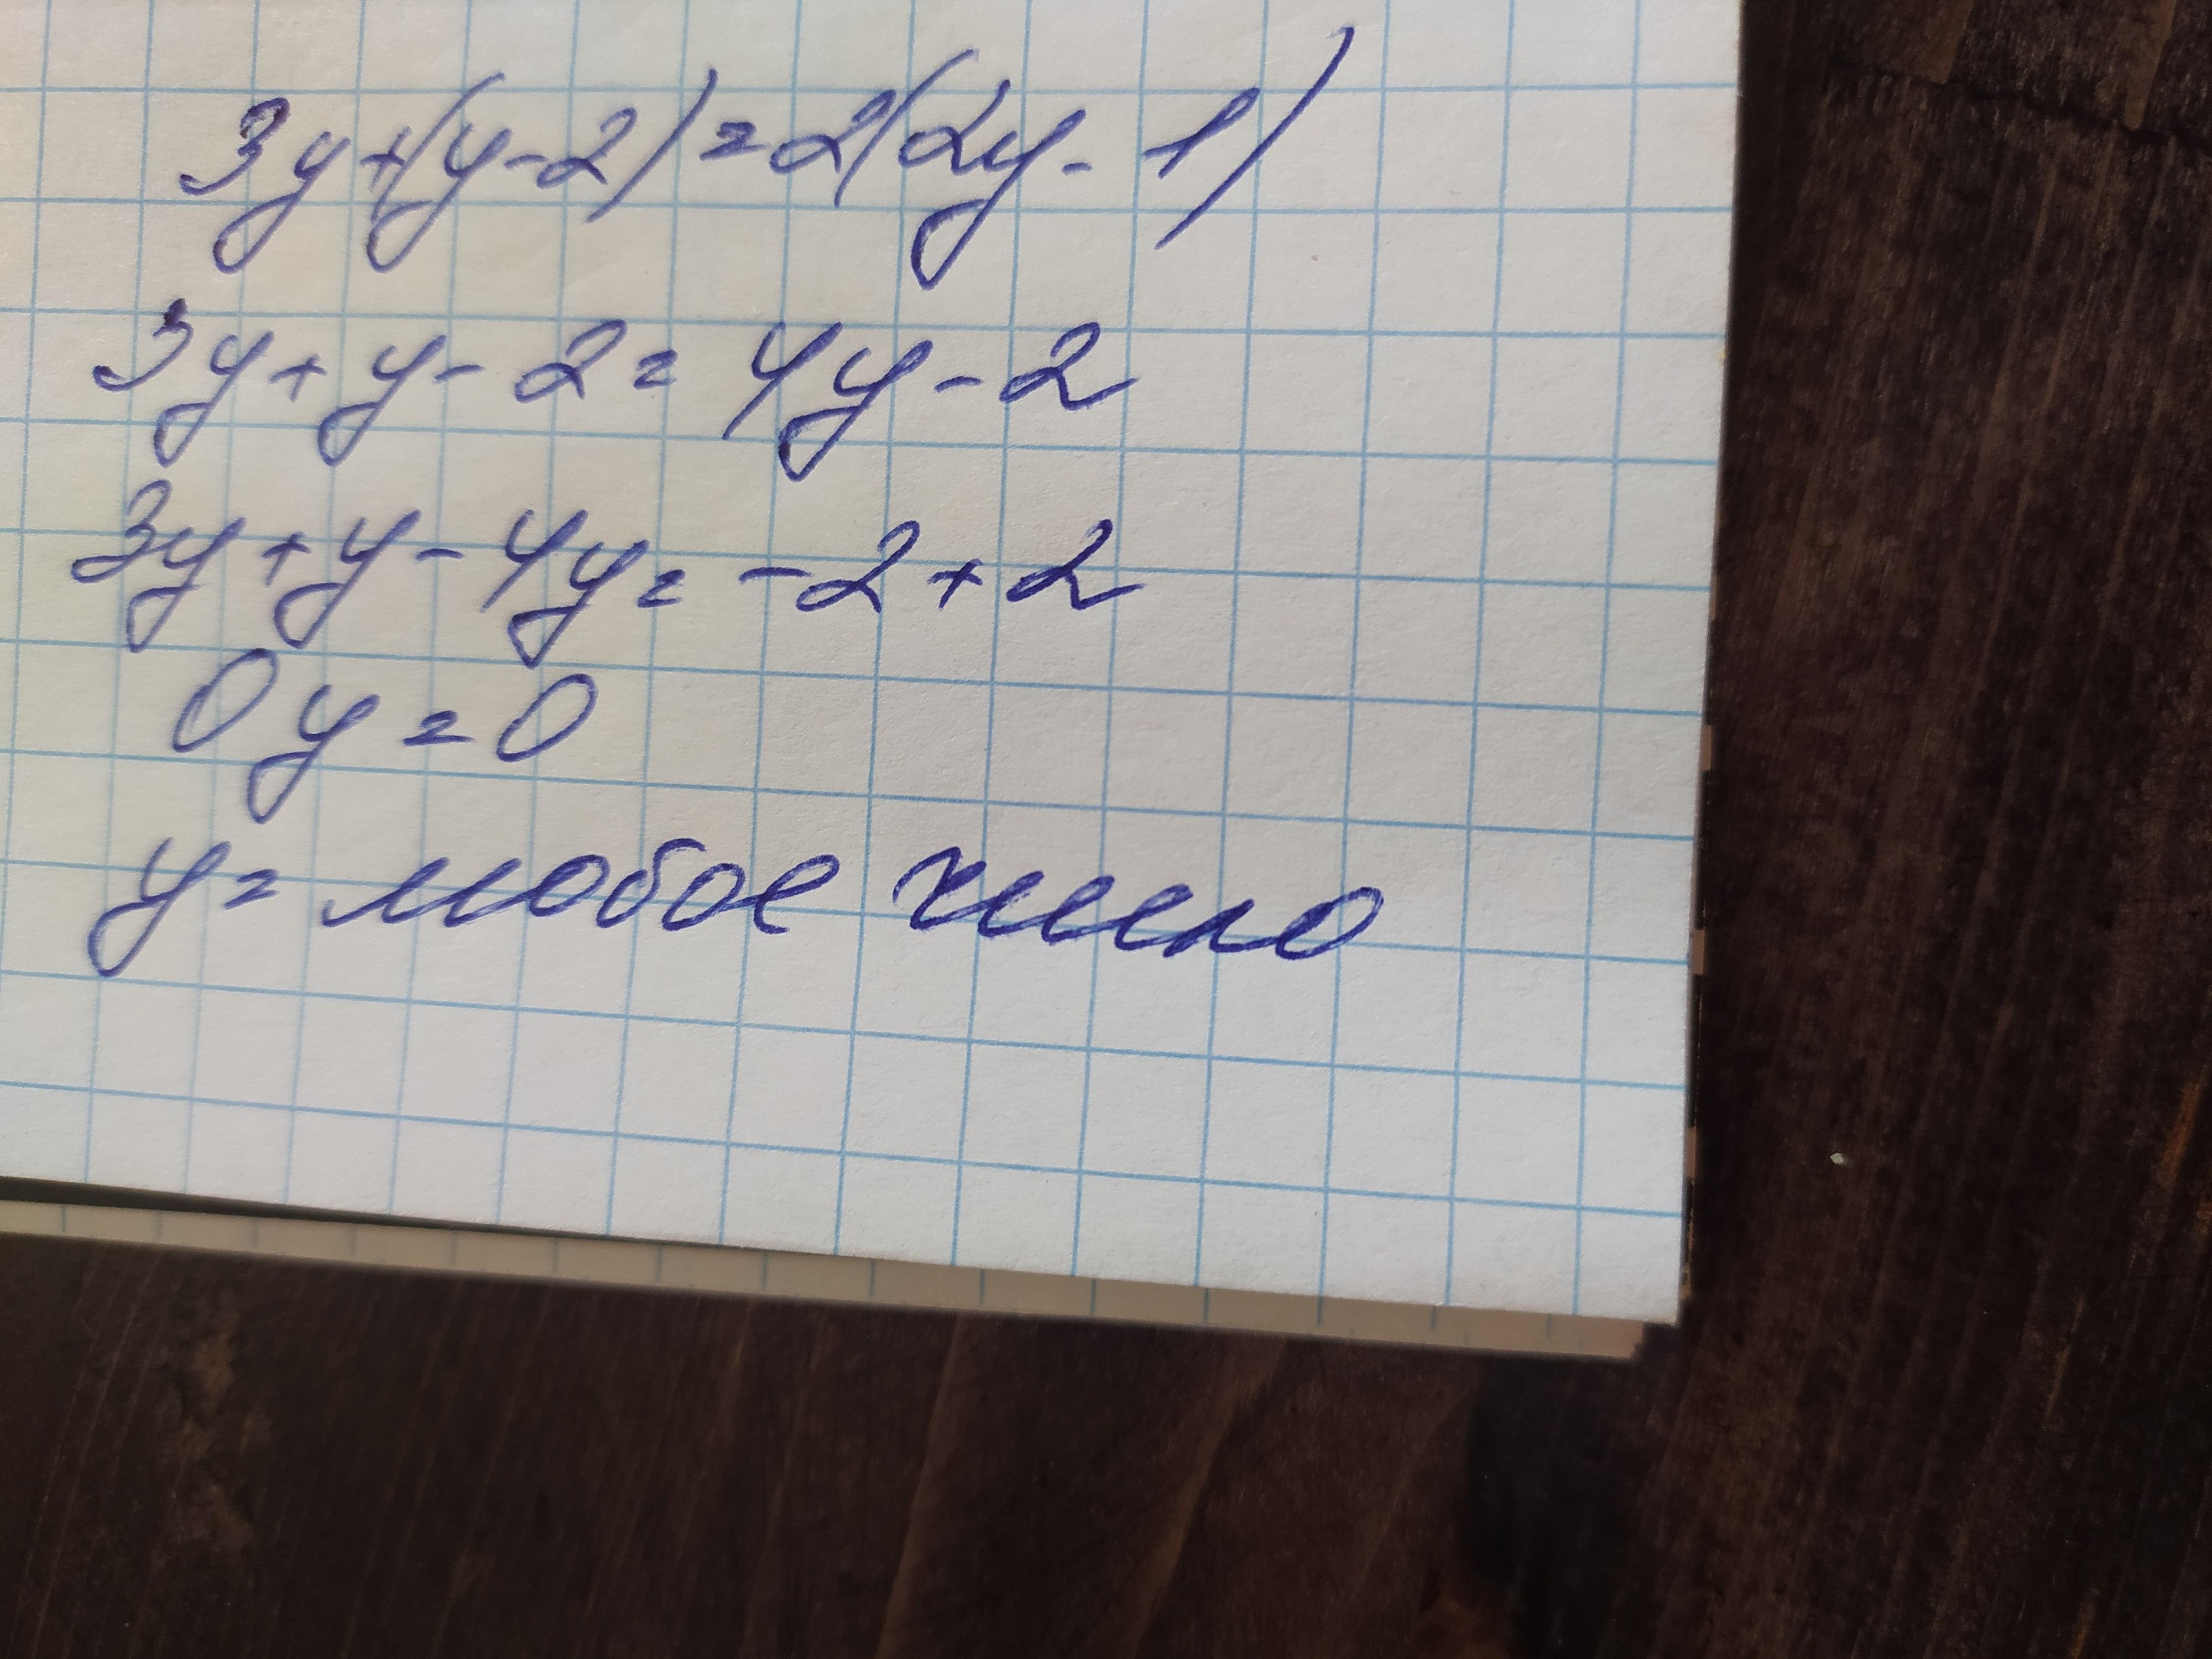 3y+(y-2)=2(2y-1)
3y+y-2=4y-2
3y+y-4y=-2+2
0y=0
y= любое число